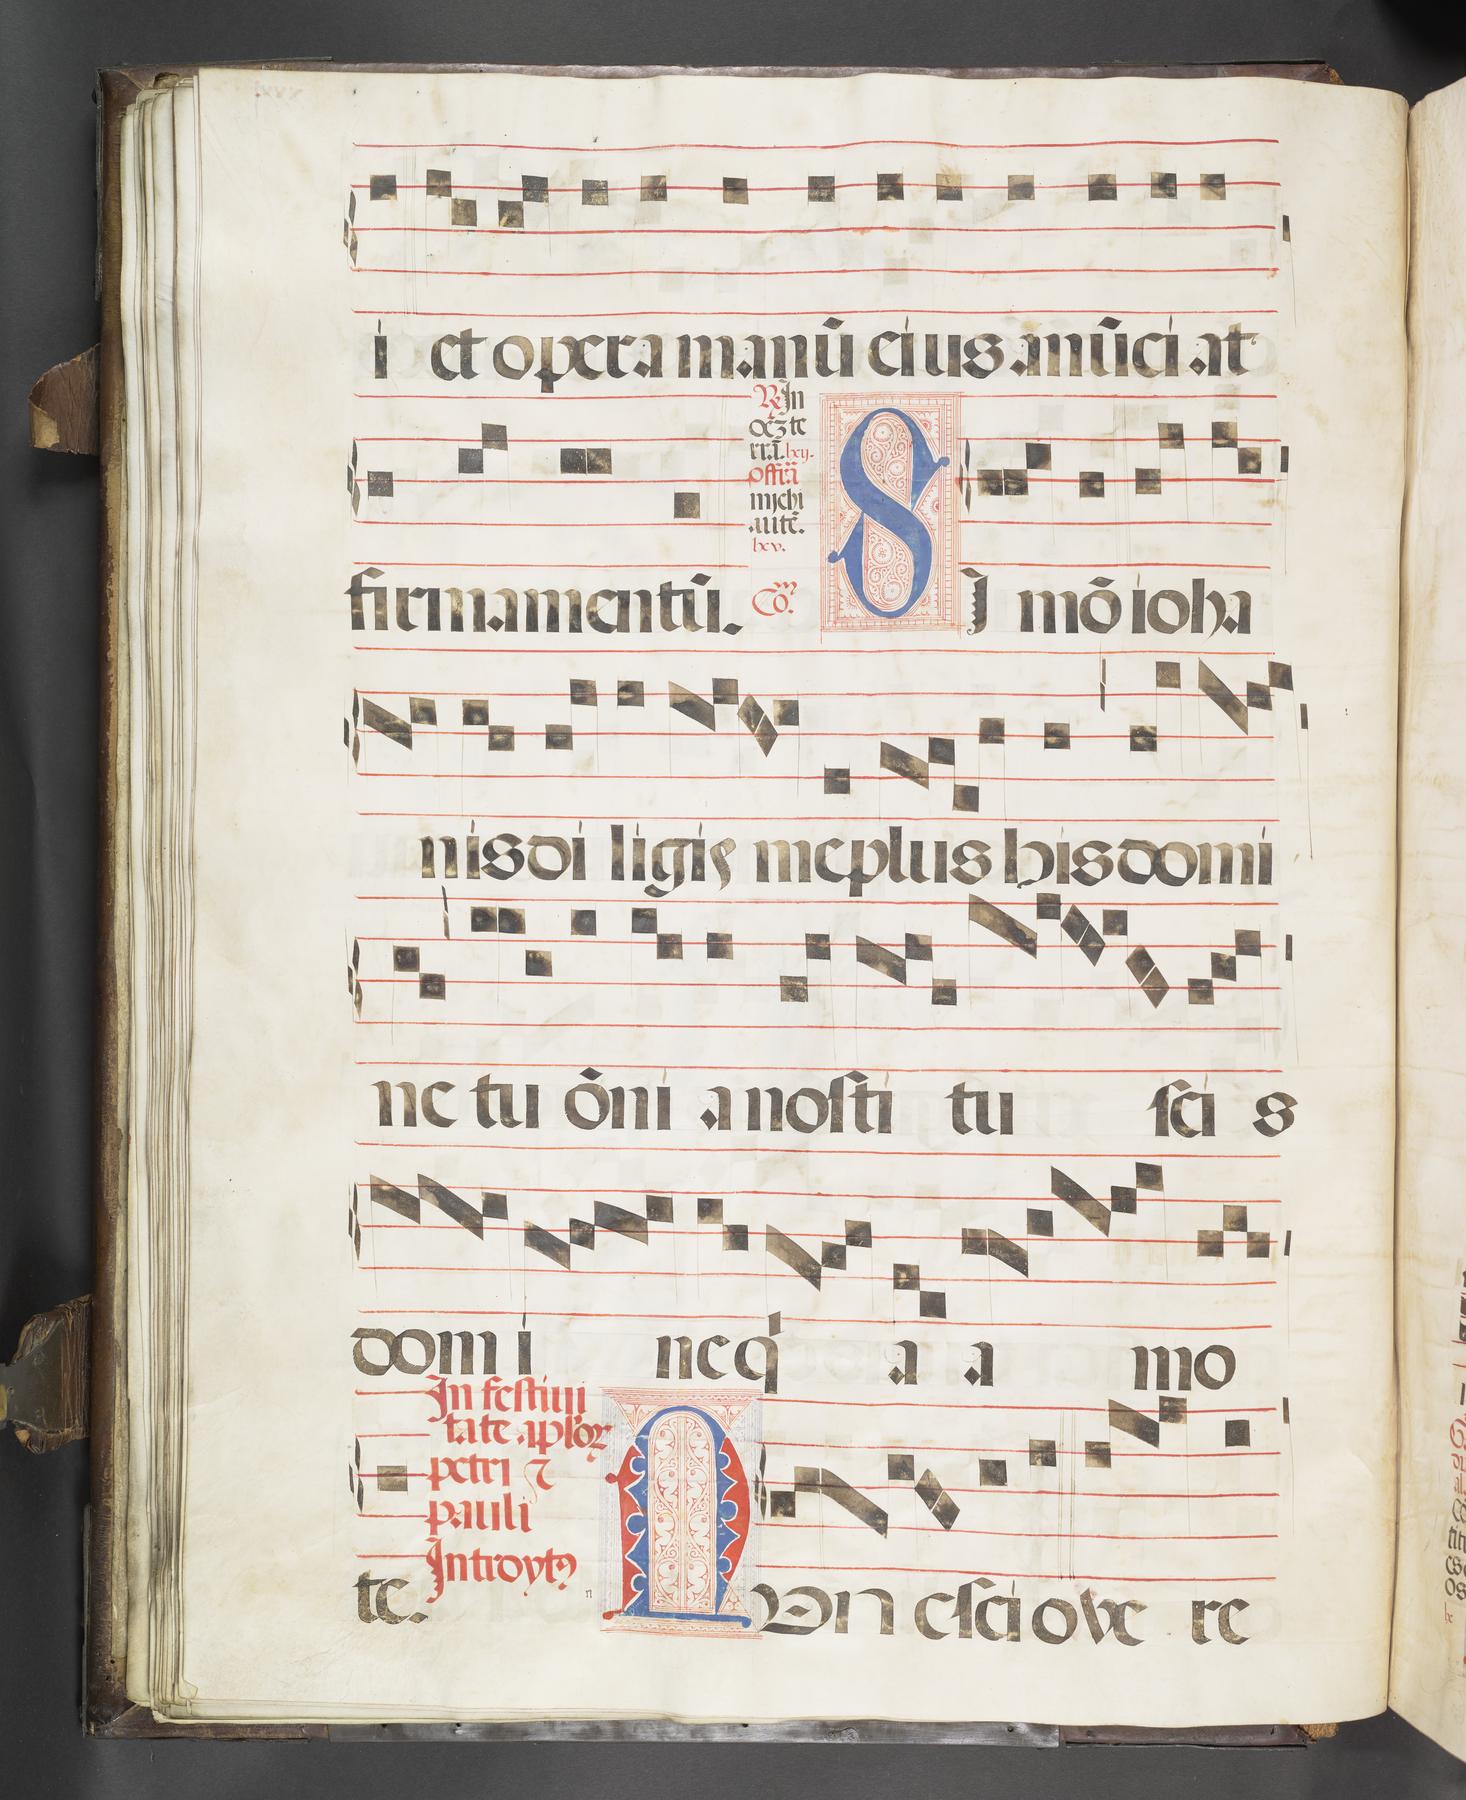 i et opera manū eius anūciat
℟ In
oēȝ te
rrā. lxij.
offm̄
michi
autē.
lxv.
firmamentū. Com̄. S I mō ioha
nis di ligis me plus his domi
ne tu ōni a nosti tu sci s
domi ne q̇ a a mo
In festiui
tate aplōꝝ
petri ⁊
pauli
Introytꝰ
te. n N On esci o ve re